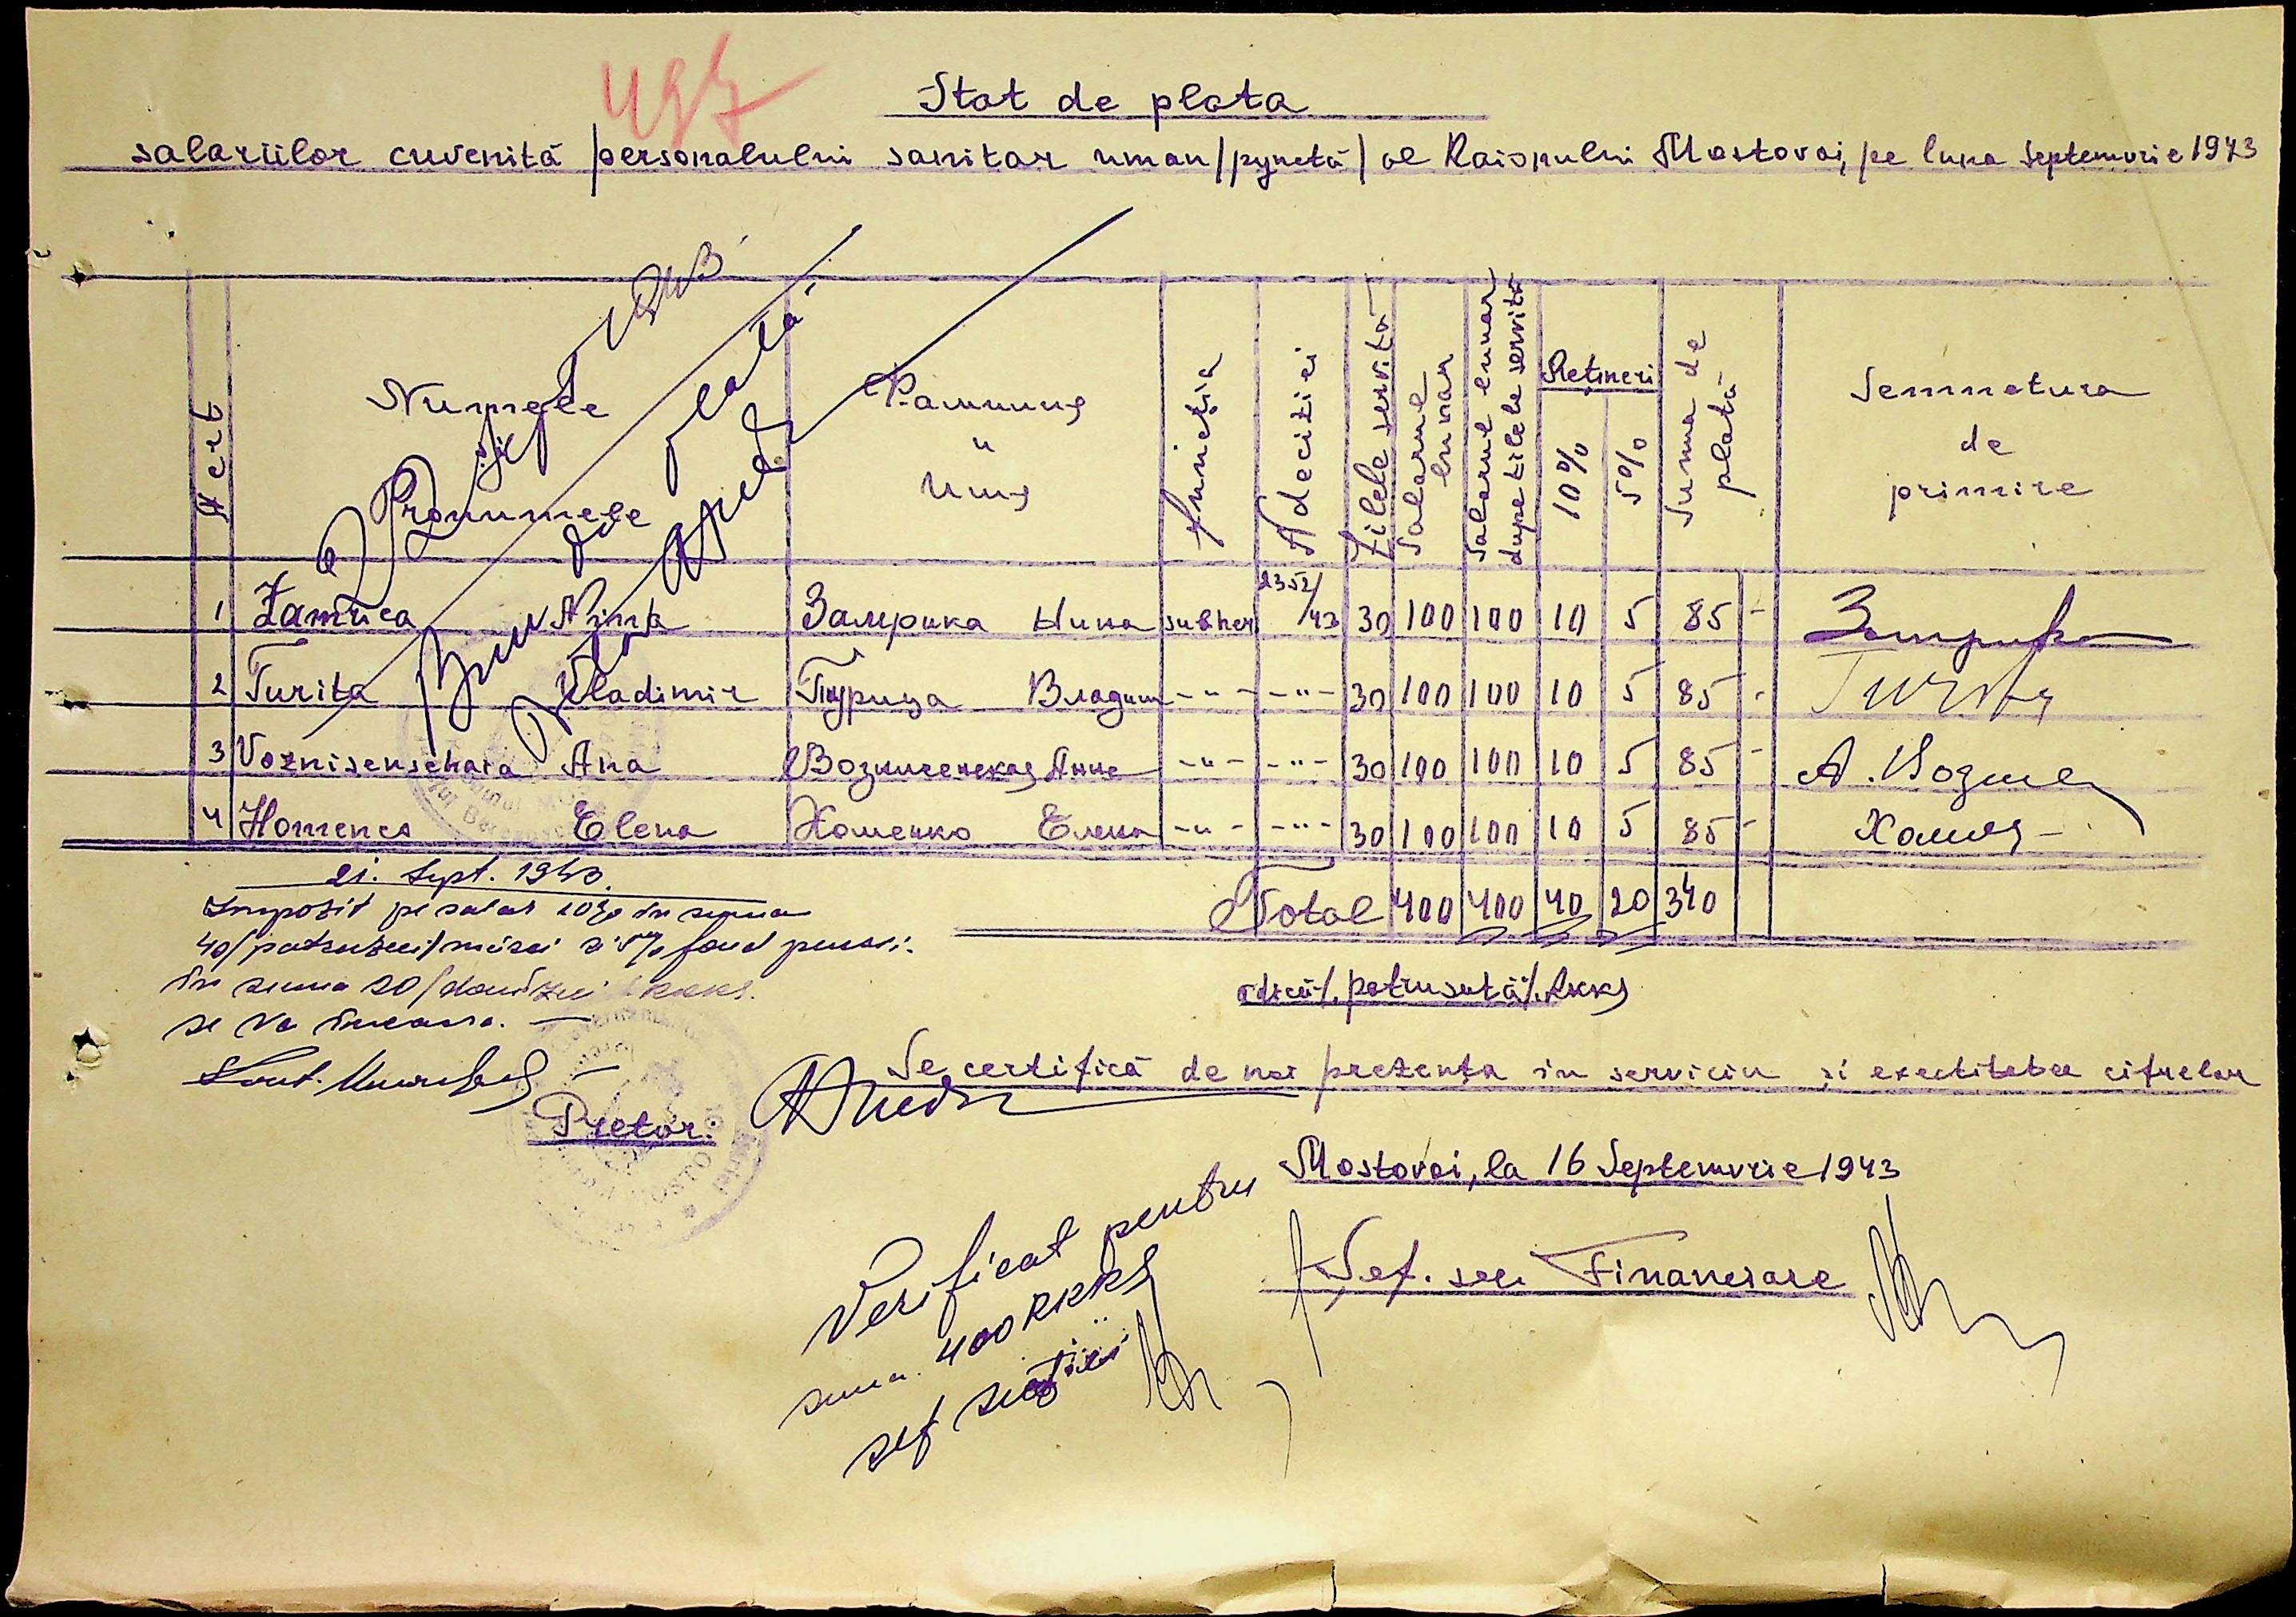 Stat de plata
salariilor cuvenită personalului sanitar uman / al Raionului Mostovoi, pe luna Septemvrie 1943
Numele
și
Pronumele
de plată
Фамилия
и
имя
Funcția
N deciziei
Zilele servite
Salarul lunar
Salarul lunar dupe zilele servite
Retineri
10%
5%
Suma de plată
Semnatura
de
primire
1 Zamrica Nina Замрика Нина subher 2352/43 30 100 100 10 5 85 -
2 Turita Vladimir Турица Владим -"- -"- 30 100 100 10 5 85 - Turita
3 Voznisenschaia Ana Вознисенская Анна -"- -"- 30 100 100 10 5 85 -
4 Homenco Elena Хоменко Елена -"- -"- 30 100 100 10 5 85 -
Total 400 400 40 20 340
21. Sept. 1943.
Impozit pe salar 10% in suma
40/patruzeci/mărci si 5% fond pensii
în suma 20/douăzeci rkks.
se va încasa. —
adică/.patrusută/.Rkks
Se certifică de noi prezența in serviciu și exactitatea cifrelor
Pretor.
Mostovoi, la 16 Septemvrie 1943
Șef. sec. Financiare
Verificat pentru
suma. 400 RKKS
șef secției